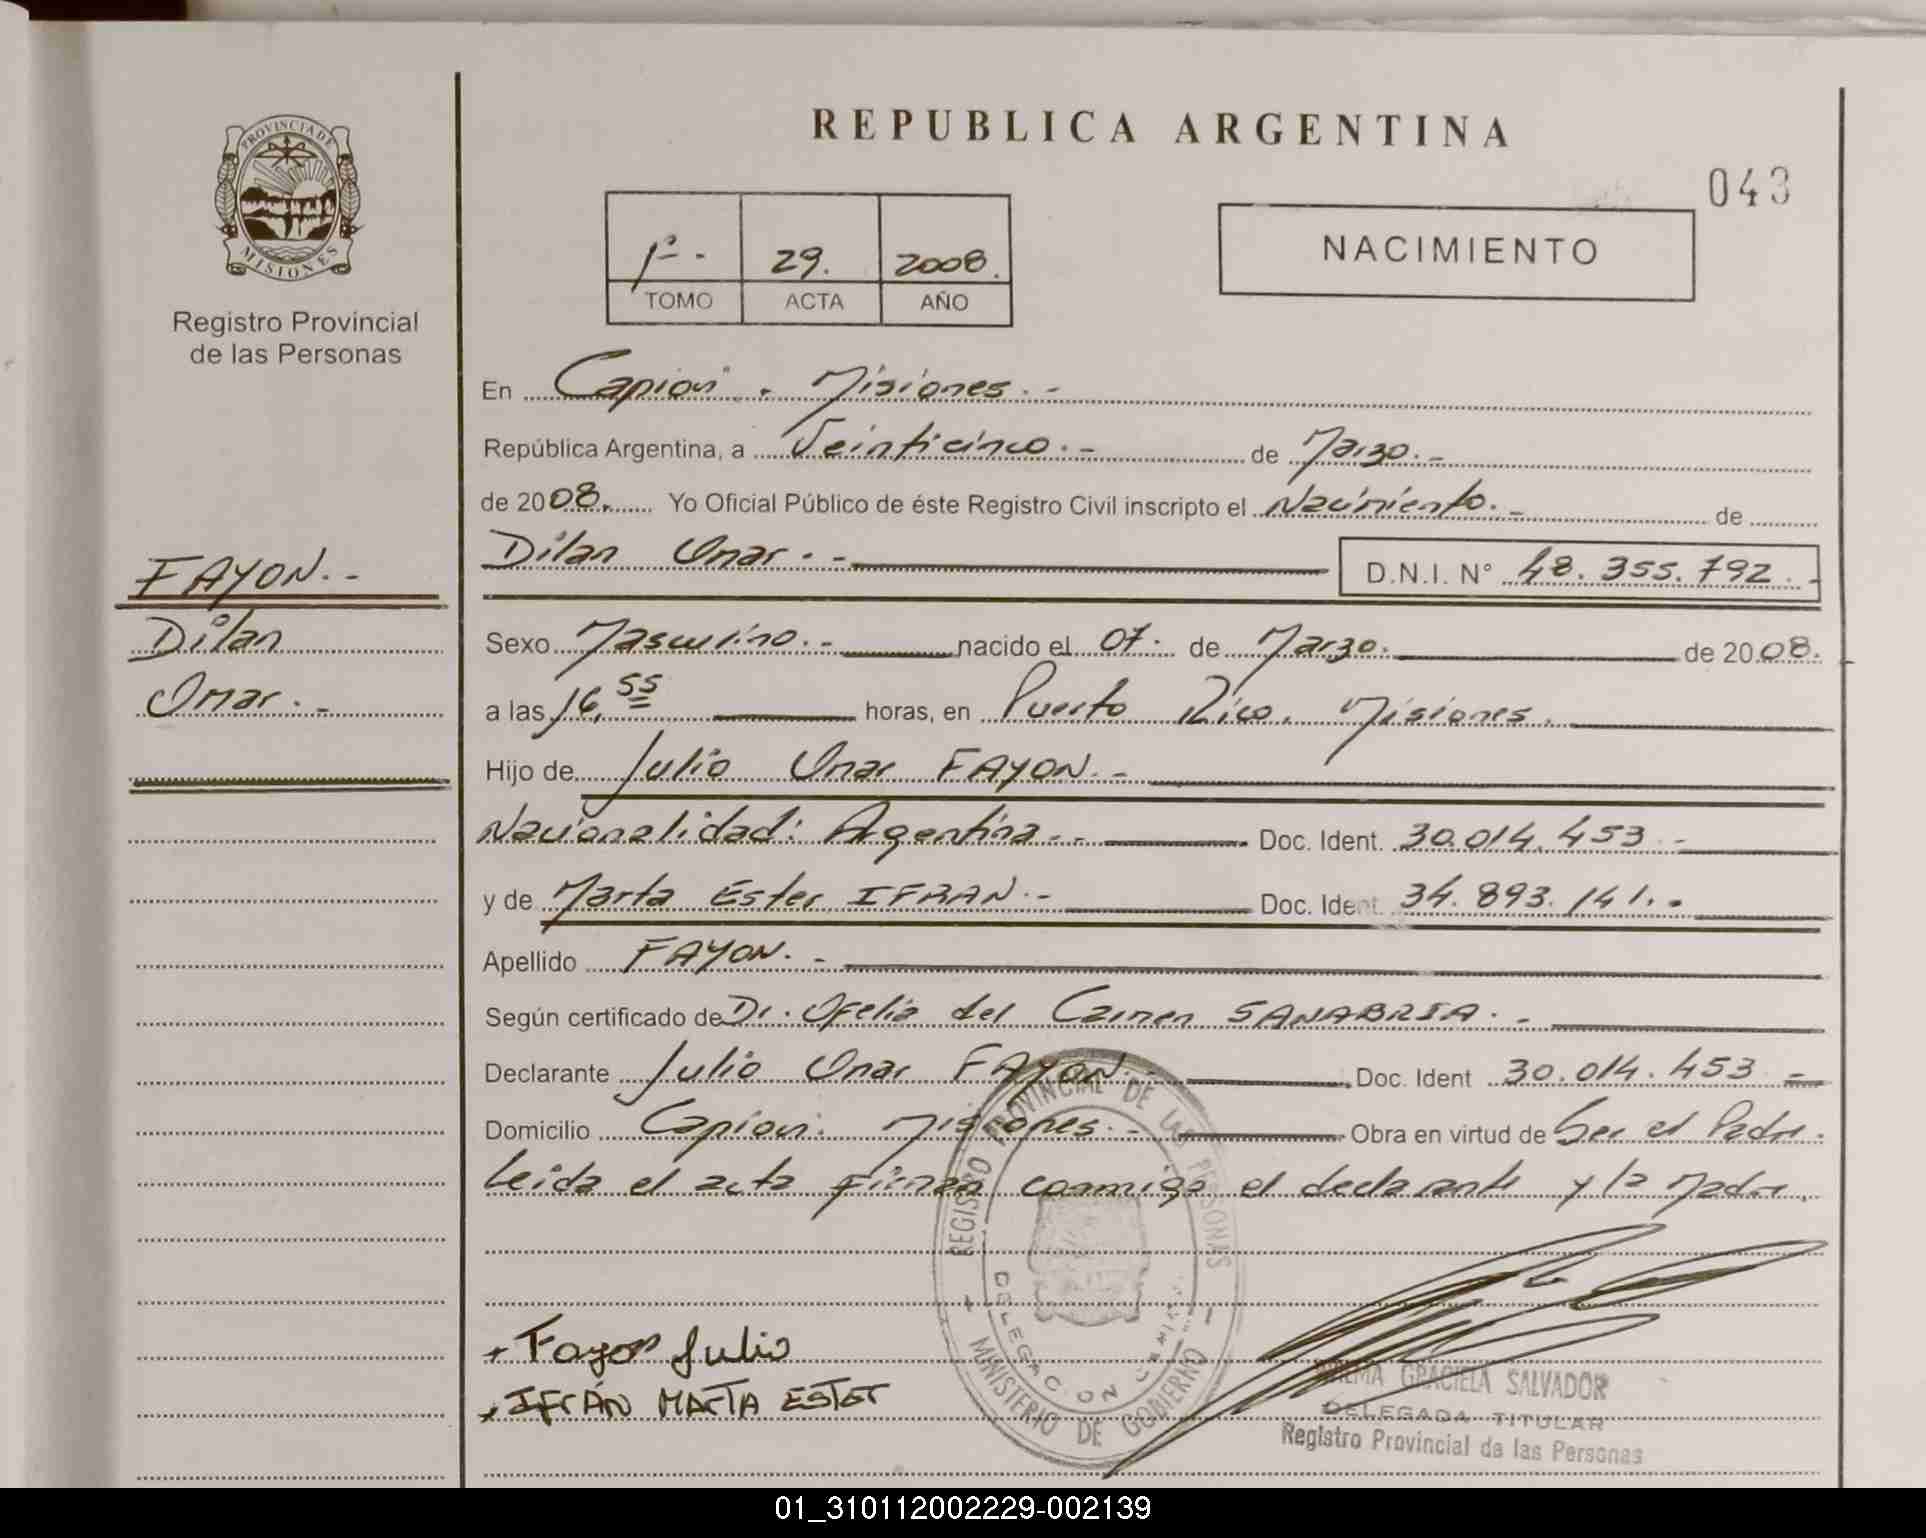 PROVINCIA DE
MISIONES
Registro Provincial
de las Personas
FAYON.-
Dilan
Omar.-
REPUBLICA ARGENTINA
043
1º.- 29. 2008.
TOMO ACTA AÑO
NACIMIENTO
En Capiovi. Misiones.-
República Argentina, a Veinticinco.- de Marzo.-
de 2008. Yo Oficial Público de éste Registro Civil inscripto el Nacimiento.- de
Dilan Omar.- D.N.I. N° 48.355.792.-
Sexo Masculino.- nacido el 07. de Marzo. de 2008.
a las 16,55 horas, en Puerto Rico. Misiones.
Hijo de Julio Omar FAYON.-
Nacionalidad: Argentina.- Doc. Ident. 30.014.453.-
y de Marta Ester IFRAN.- Doc. Ident. 34.893.141.-
Apellido FAYON.-
Según certificado de Dr. Ofelia del Carmen SANABRIA.-
Declarante Julio Omar FAYON.- Doc. Ident 30.014.453.-
Domicilio Capiovi. Misiones.- Obra en virtud de Ser el Padre.
Leida el acta firman conmigo el declarante y la Madre.
REGISTRO PROVINCIAL DE LAS PERSONAS
DELEGACION
MINISTERIO DE GOBIERNO
+ Fayon Julio
+ IFRÁN MARTA ESTER
GRACIELA SALVADOR
DELEGADA TITULAR
Registro Provincial de las Personas
01_310112002229-002139